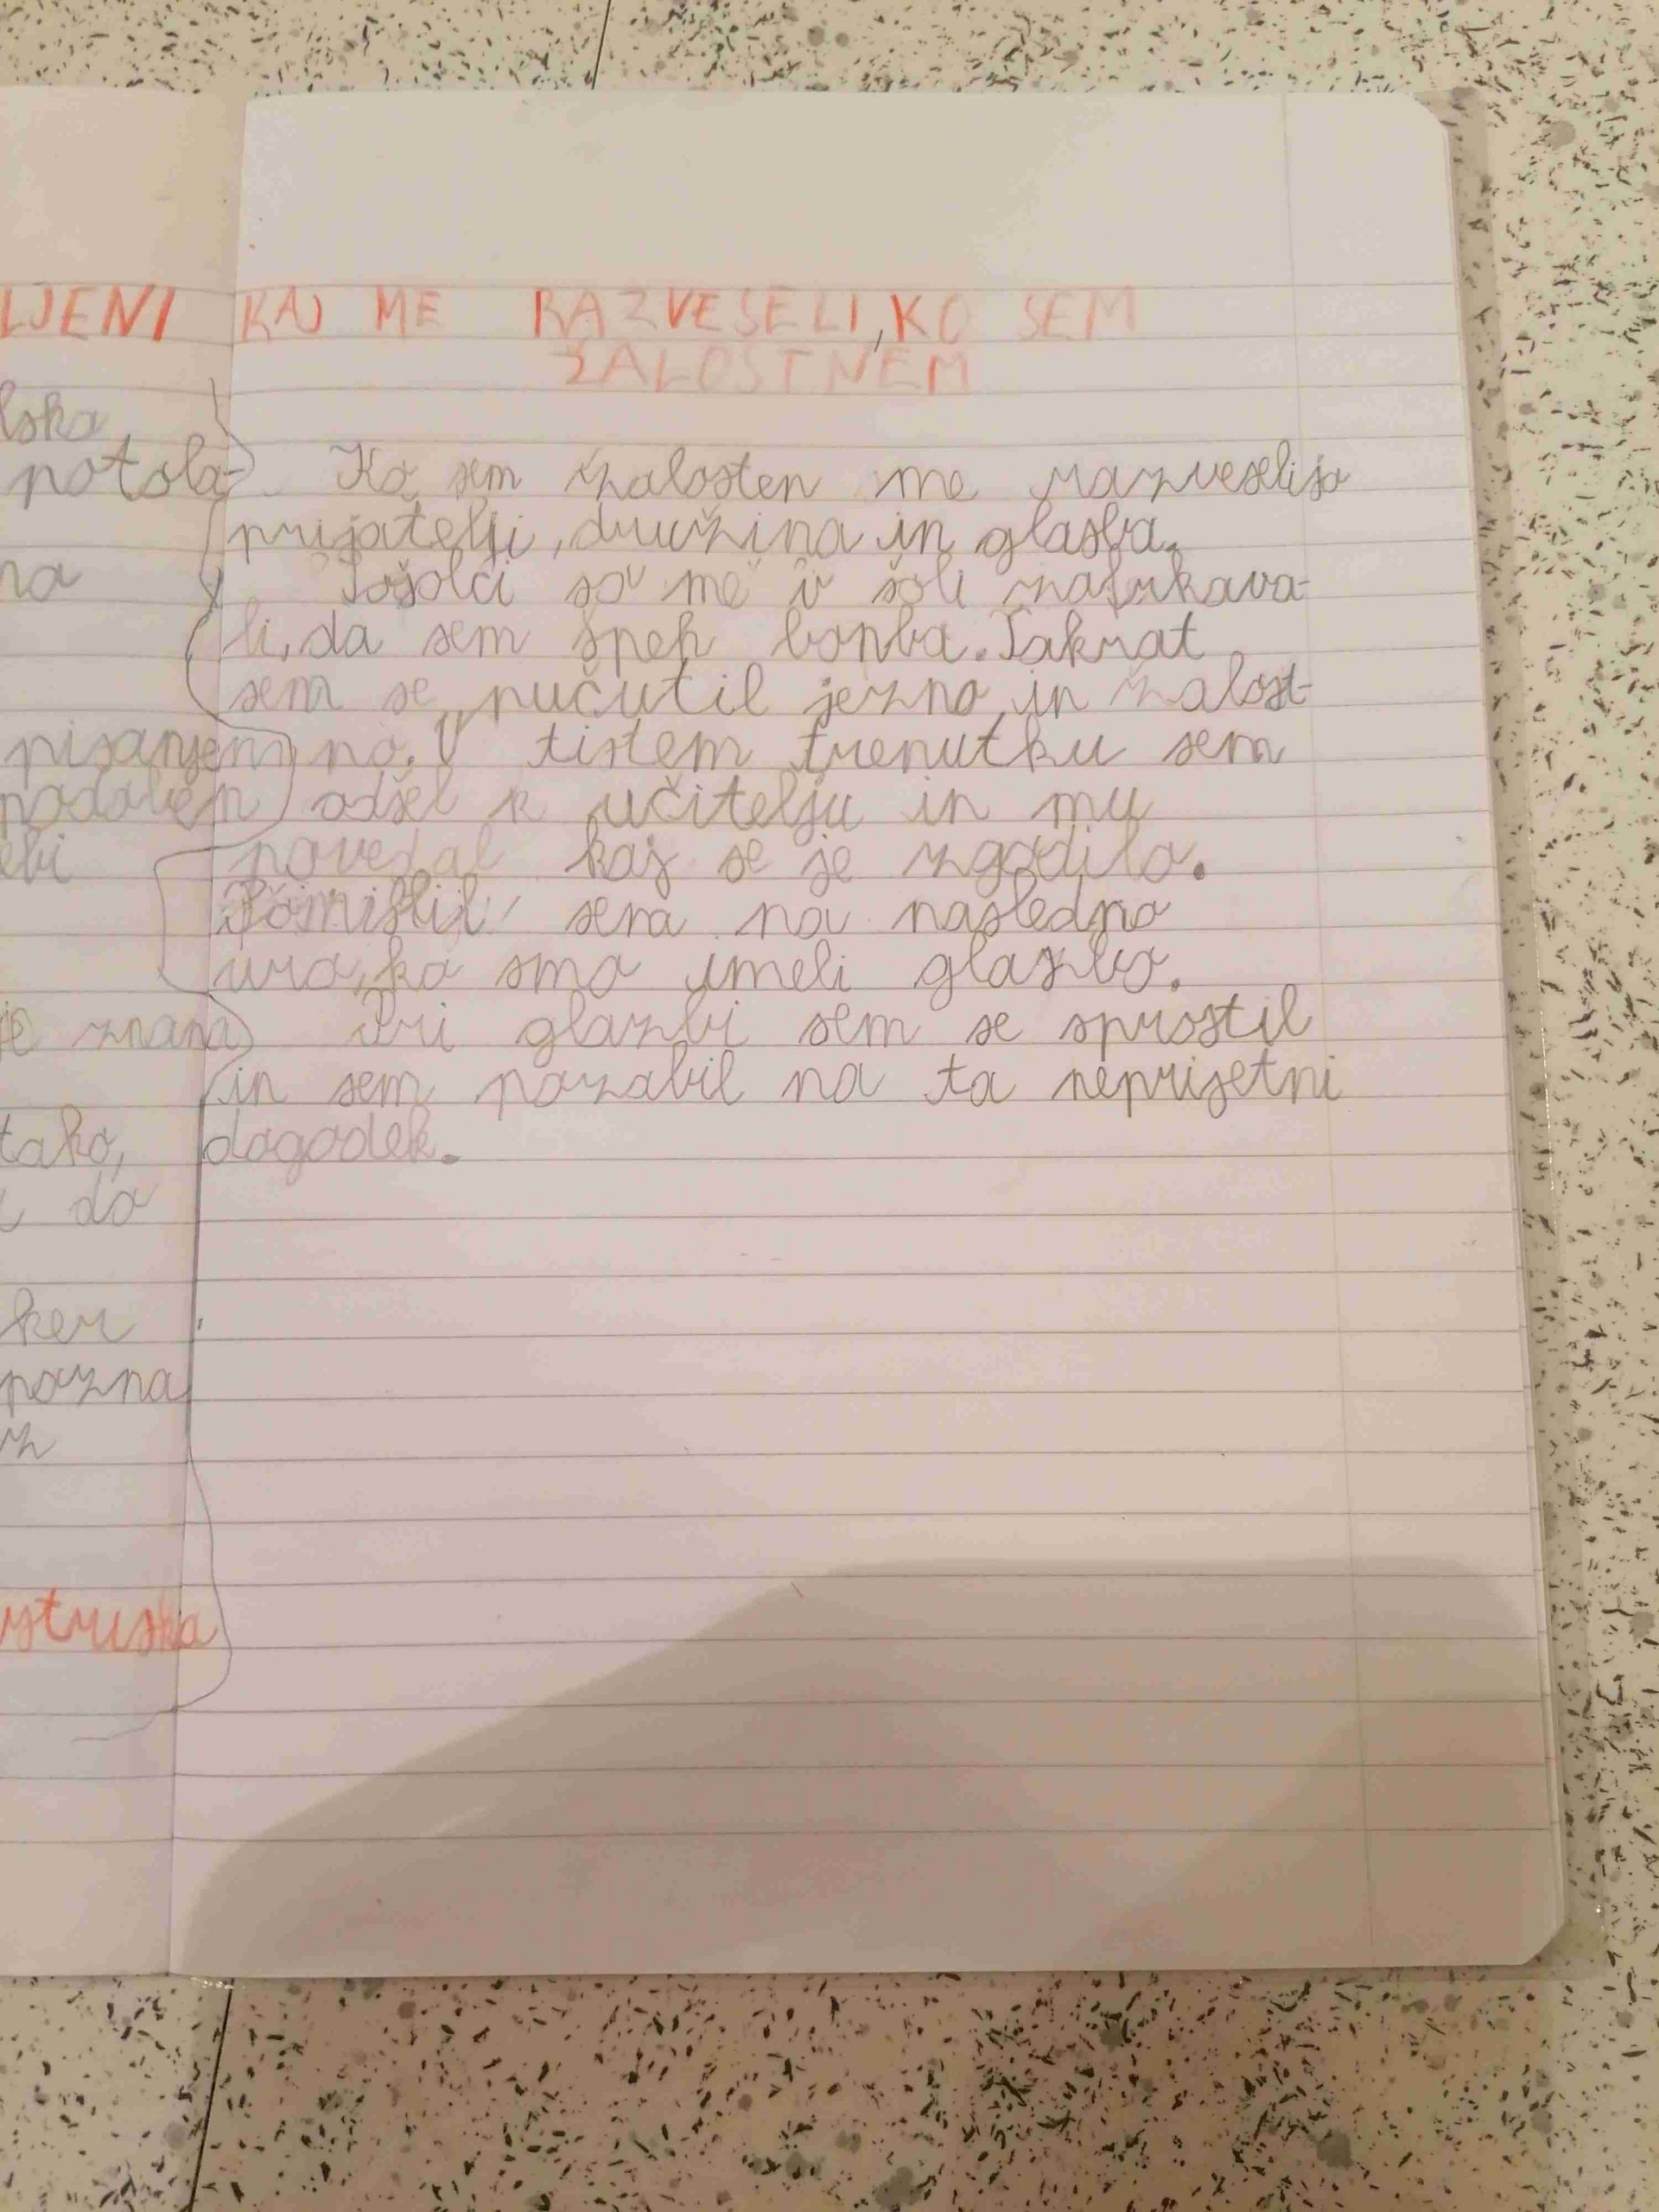 LJENI
lska
potola-
na
pisanjem
podoben
ebi
je znana
tako,
da
ker
pozna
z
KAJ ME RAZVESELI, KO SEM
ŽALOSTNEM
Ko sem žalosten me razveselijo
prijatelji, družina in glasba.
Sošolci so me v šoli zafrkava-
li, da sem špeh bonba. Takrat
sem se pučutil jezno in žalost-
no. V tistem trenutku sem
odšel k učitelju in mu
povedal kaj se je zgodilo.
Pomislil sem na nasledno
uro, ko smo imeli glazbo.
Pri glazbi sem se sprostil
in sem pozabil na ta neprijetni
dogodek.